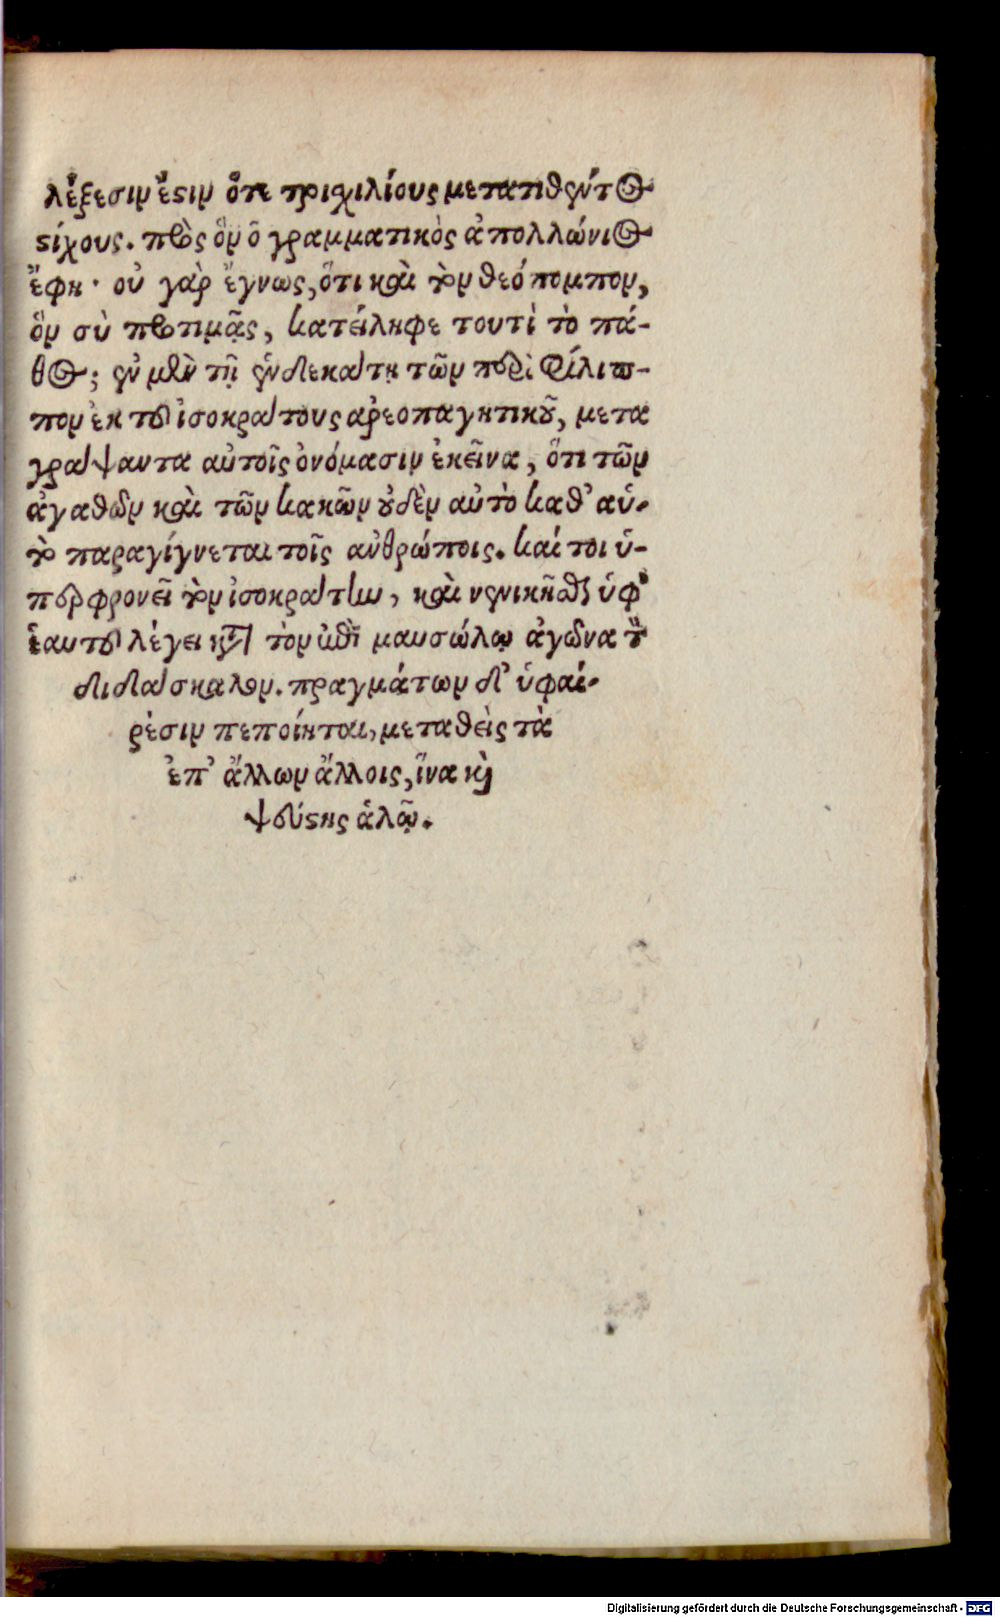 λέξεσιν ἔϛιν ὅτε τριχιλίους μετατιθέντος
ϛίχους. πρὸς ὃν ὁ γραμματικὸς ἀπολλώνιος
ἔφη· οὐ γὰρ ἔγνως, ὅτι καὶ τὸν θεόπομπον,
ὃν σὺ προτιμᾷς, κατείληφε τουτὶ τὸ πά-
θος; ἐν μὲν τῇ ἑνδεκάτῃ τῶν περὶ Φίλιπ-
πον ἐκ τοῦ ἰσοκράτους αρεοπαγητικοῦ, μετα
γράψαντα αὐτοῖς ὀνόμασιν ἐκεῖνα, ὅτι τῶν
ἀγαθῶν καὶ τῶν κακῶν οὐδὲν αὐτὸ καθ' αὑ-
τὸ παραγίγνεται τοῖς ανθρώποις. καί τοι ὑ-
περφρονεῖ τὸν ἰσοκράτην, καὶ νενικῆσθαι ὑφ'
ἑαυτοῦ λέγει κατὰ τὸν ἐπὶ μαυσώλῳ ἀγῶνα τὸν
διδάσκαλον. πραγμάτων δ' ὑφαί-
ρεσιν πεποίηται, μεταθεὶς τὰ
ἐπ' ἄλλων ἄλλοις, ἵνα καὶ
ψεύϛης ἁλῷ.
Digitalisierung gefördert durch die Deutsche Forschungsgemeinschaft - DFG